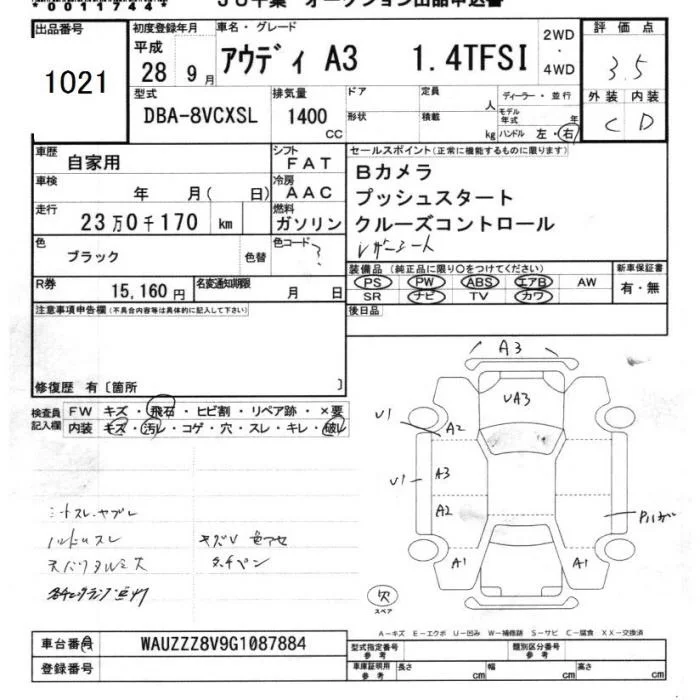 *00117444*
JU千葉 オークション出品申込書
出品番号 1021
初度登録年月 平成 28 9月
車名・グレード アウディ A3 1.4TFSI
2WD・4WD
評価点 3.5
外装 内装
C D
型式 DBA-8VCXSL
排気量 1400 CC
ドア 形状
定員 人
積載 kg
ディーラー・並行
モデル年式 年
ハンドル 左・右
車歴 自家用
シフト FAT
車検 年 月( 日)
冷房 AAC
走行 23万0千170 km
燃料 ガソリン
色 ブラック 色替
色コード ?
R券 15,160円
名変通知期限 月 日
セールスポイント(正常に機能するものに限ります)
Bカメラ
プッシュスタート
クルーズコントロール
レザーシート
装備品(純正品に限り○をつけてください)
PS PW ABS エアB AW
SR ナビ TV カワ
新車保証書
有・無
後日品
注意事項申告欄(不具合内容等は具体的に記入して下さい)
修復歴 有〔箇所 〕
検査員記入欄
FW キズ・飛石・ヒビ割・リペア跡・×要
内装 キズ・汚レ・コゲ・穴・スレ・キレ・破レ
シートスレ・ヤブレ
ハンドルスレ
キズV 色アセ
タッチペン
A3
UA3
U1
A2
U1
A3
A2
A1
A1
欠
スペア
A-キズ E-エクボ U-凹み W-補修跡 S-サビ C-腐食 XX-交換済
車台番号 WAUZZZ8V9G1087884
登録番号
型式指定番号 参考
類別区分番号 参考
車庫証明用 参考
長さ cm
幅 cm
高さ cm